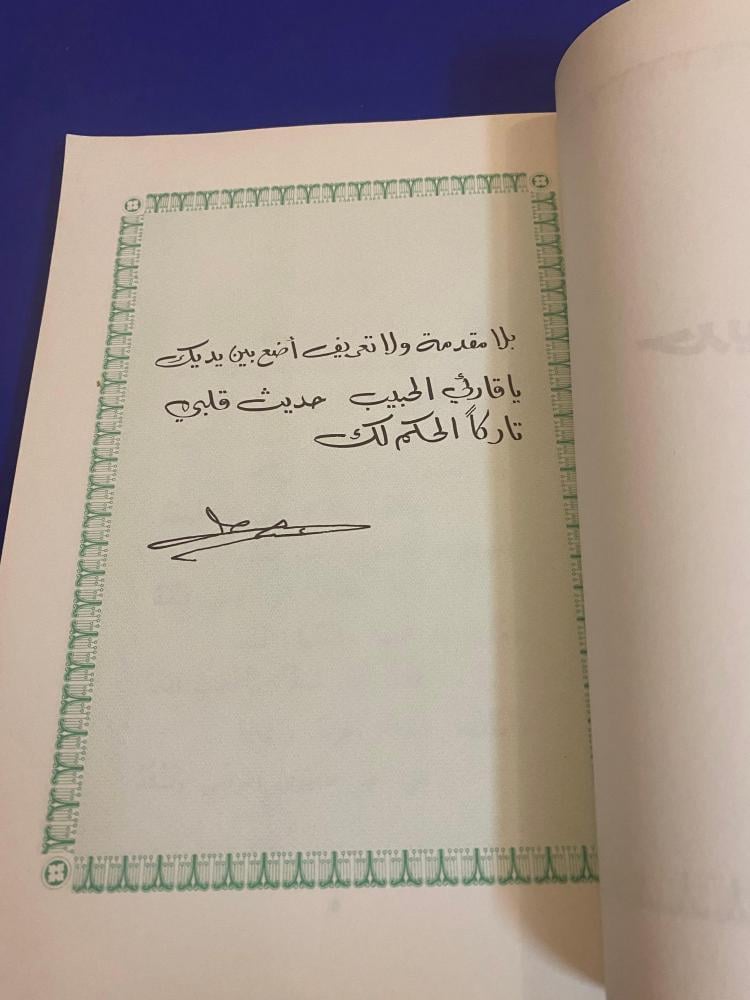 بلا مقدمة ولا تعريف أضع بين يديك
يا قارئي الحبيب حديث قلبي
تاركاً الحكم لك